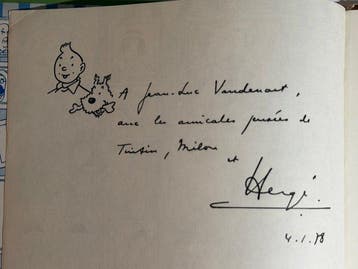 A Jean-Luc Vandenaert,
avec les amicales pensées de
Tintin, Milou
et
Hergé.
4.1.78